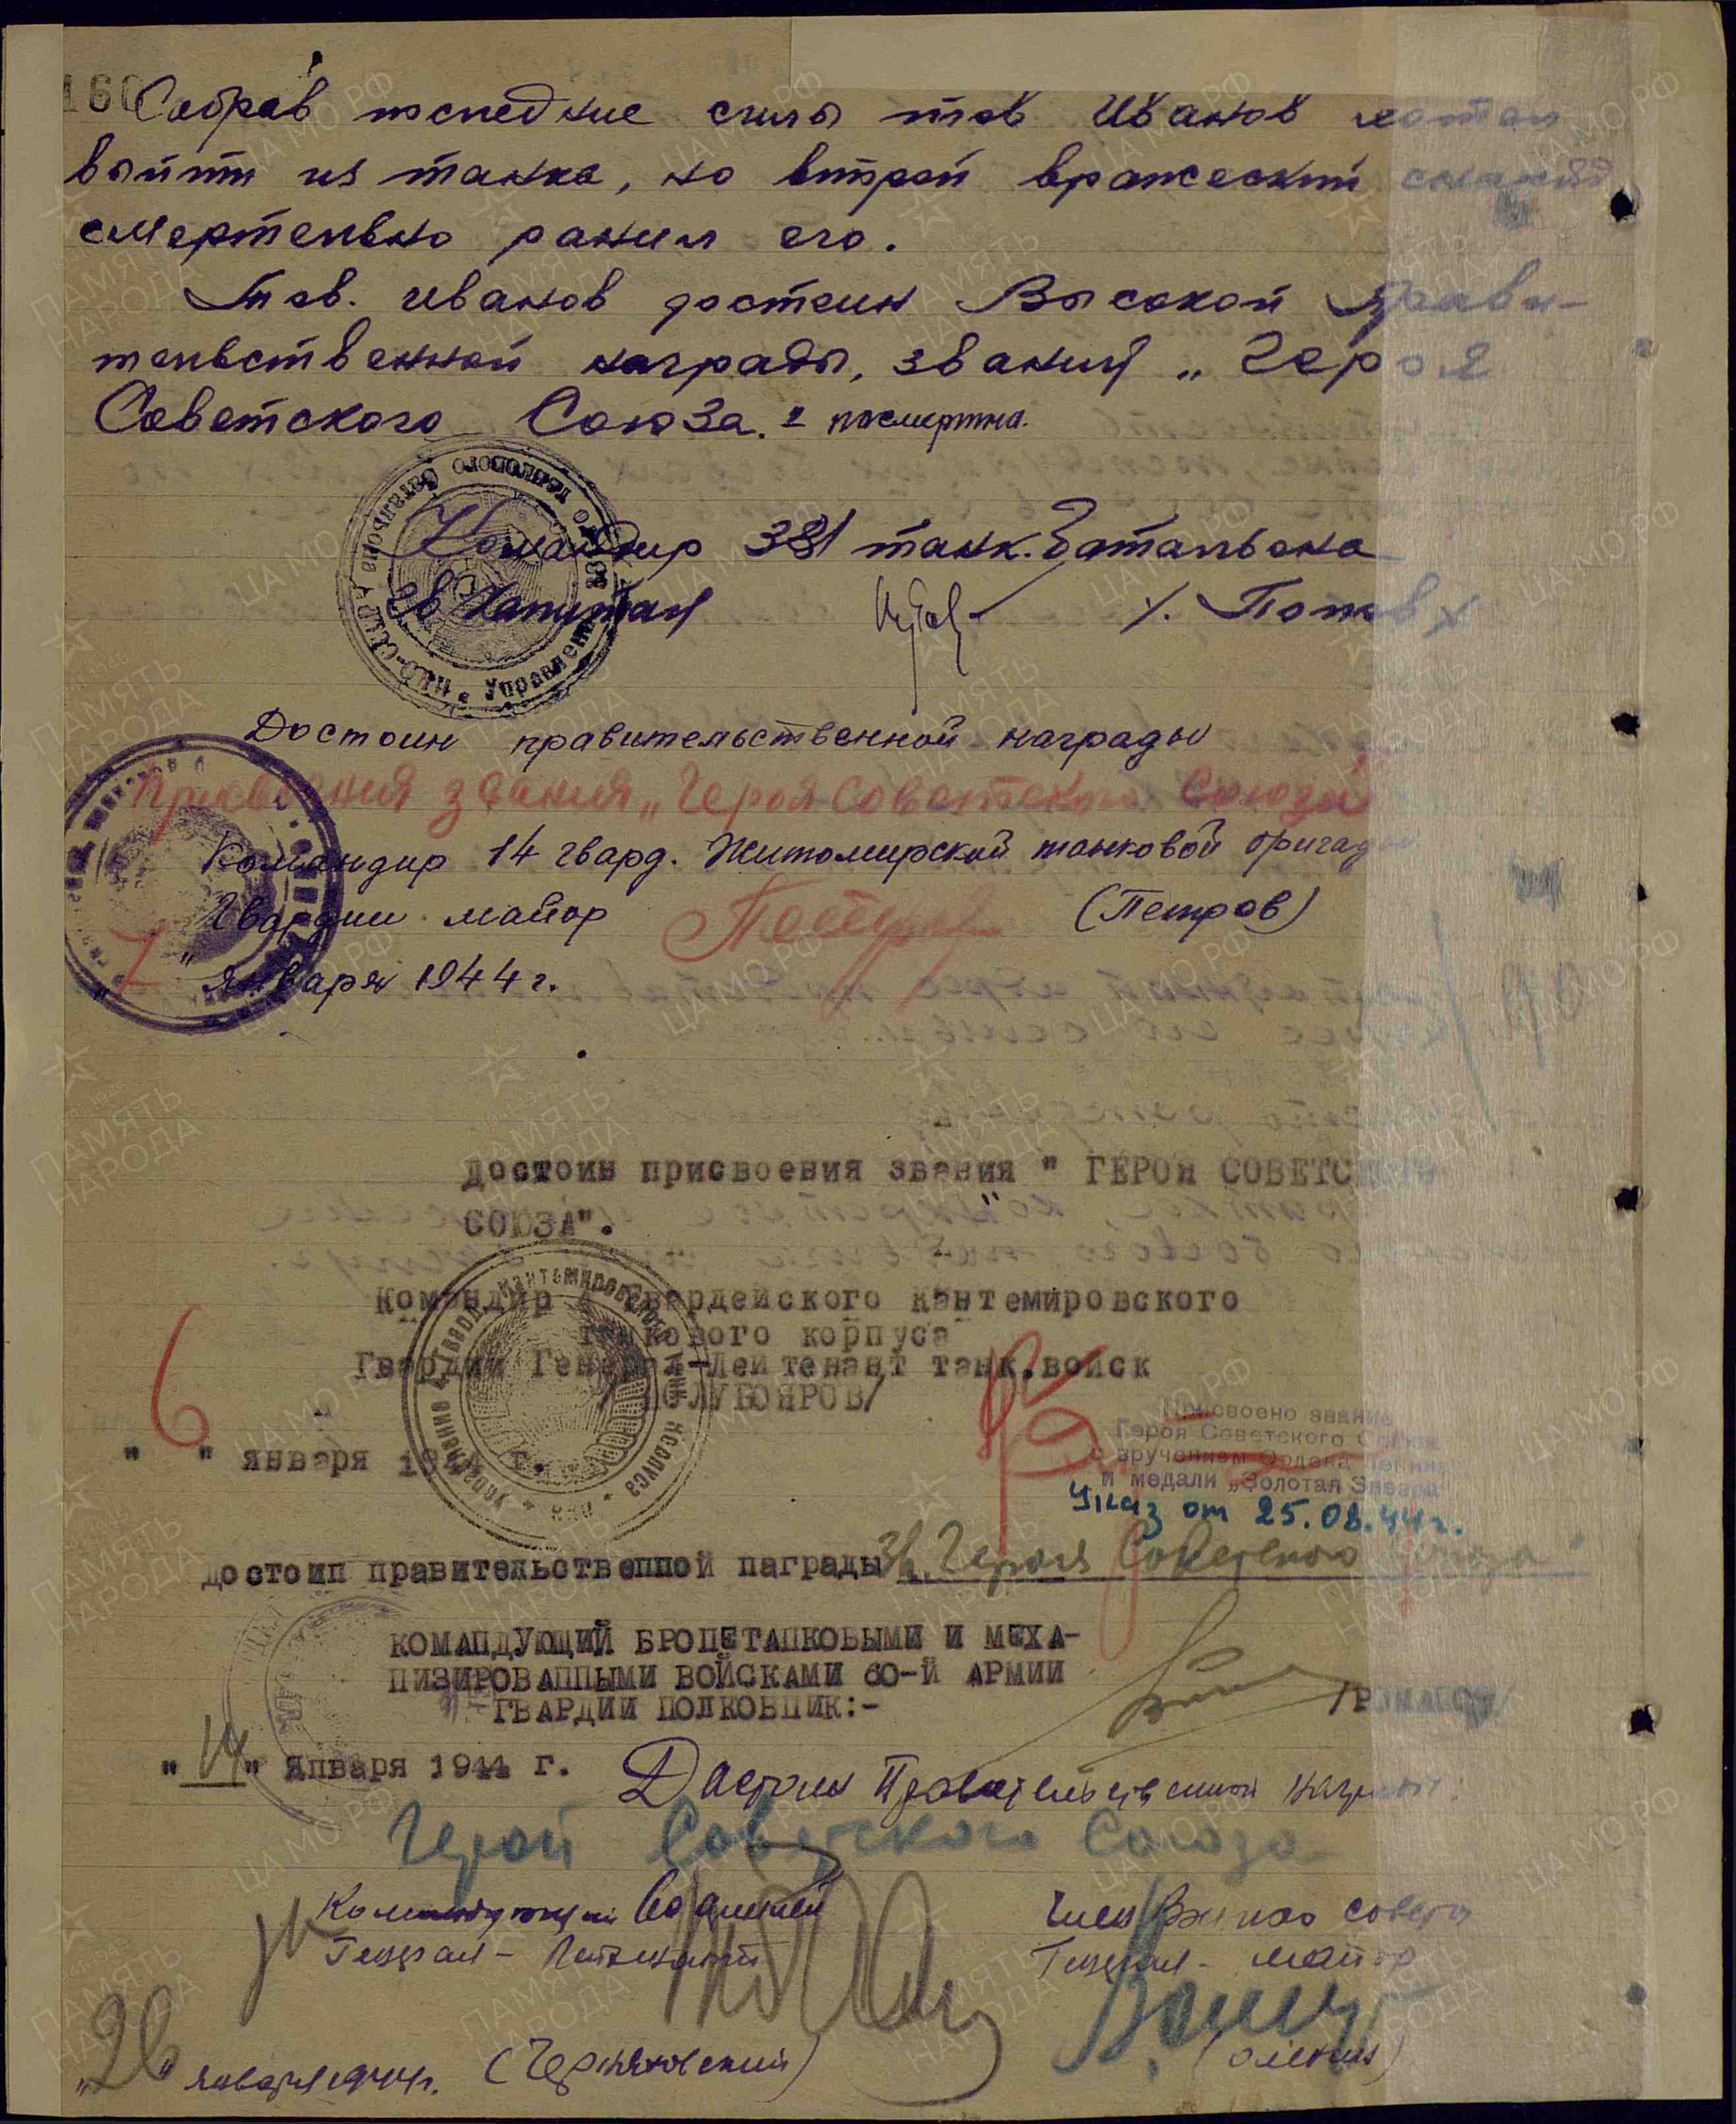 160
Собрав последние силы тов Иванов хотел
выйти из танка, но второй вражеский снаряд
смертельно ранил его.
Тов. Иванов достоин Высокой Прави-
тельственной награды, звания „Героя
Советского Союза." посмертно.
Командир 381 танк. батальона
гв Капитан /. Попов /
Достоин правительственной награды
присвоения звания „Героя Советского Союза"
Командир 14 гвард. Житомирской танковой бригады
Гвардии майор (Петров)
" 7 " января 1944 г.
Достоин присвоения звания " ГЕРОЯ СОВЕТСКОГО
СОЮЗА".
Командир 4 Гвардейского Кантемировского
танкового корпуса
Гвардии Генерал-Лейтенант танк.войск
/ПОЛУБОЯРОВ/
" 6 " января 1944 г.
Присвоено звание
Героя Советского Союза
с вручением Ордена Ленина
и медали „Золотая Звезда"
Указ от 25.08.44г.
Достоин правительственной награды Зв. „Героя Советского Союза"
КОМАНДУЮЩИЙ БРОНЕТАНКОВЫМИ И МЕХА-
НИЗИРОВАННЫМИ ВОЙСКАМИ 60-Й АРМИИ
ГВАРДИИ ПОЛКОВНИК:-
"14" Января 1944 г.
Достоин Правительственной награды:
Герой Советского Союза
Командующий 60 армией Член Военного совета
Генерал-Лейтенант Генерал-майор
(Черняховский) (Оленин)
"26" января 1944г.